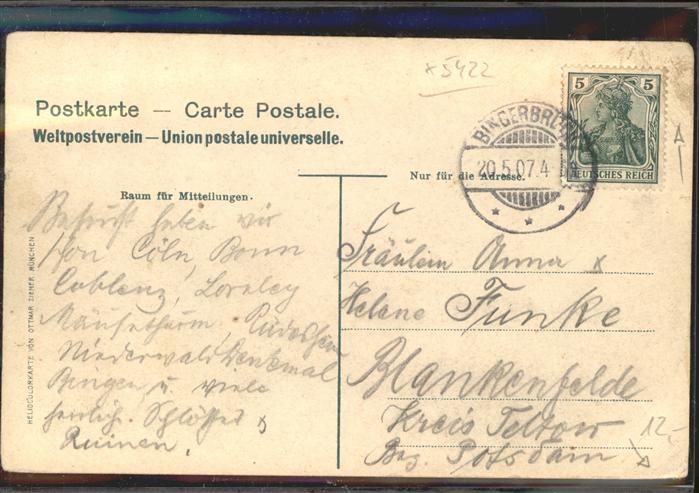 *5422
Postkarte — Carte Postale.
Weltpostverein — Union postale universelle.
5 5
DEUTSCHES REICH
BINGERBRÜCK
20.5.07.4
Nur für die Adresse.
Raum für Mitteilungen.
Besucht haben wir
schon Cöln, Bonn
Coblenz, Loreley
Mäusethurm, Rüdesheim
Niederwald Denkmal
Bingen u. viele
herrlich. Schlösser &
Ruinen.
HELIOCOLORKARTE VON OTTMAR ZIEHER, MÜNCHEN
Fräulein Anna &
Helene Funke
Blankenfelde
Kreis Teltow
Bez. Potsdam
12.-